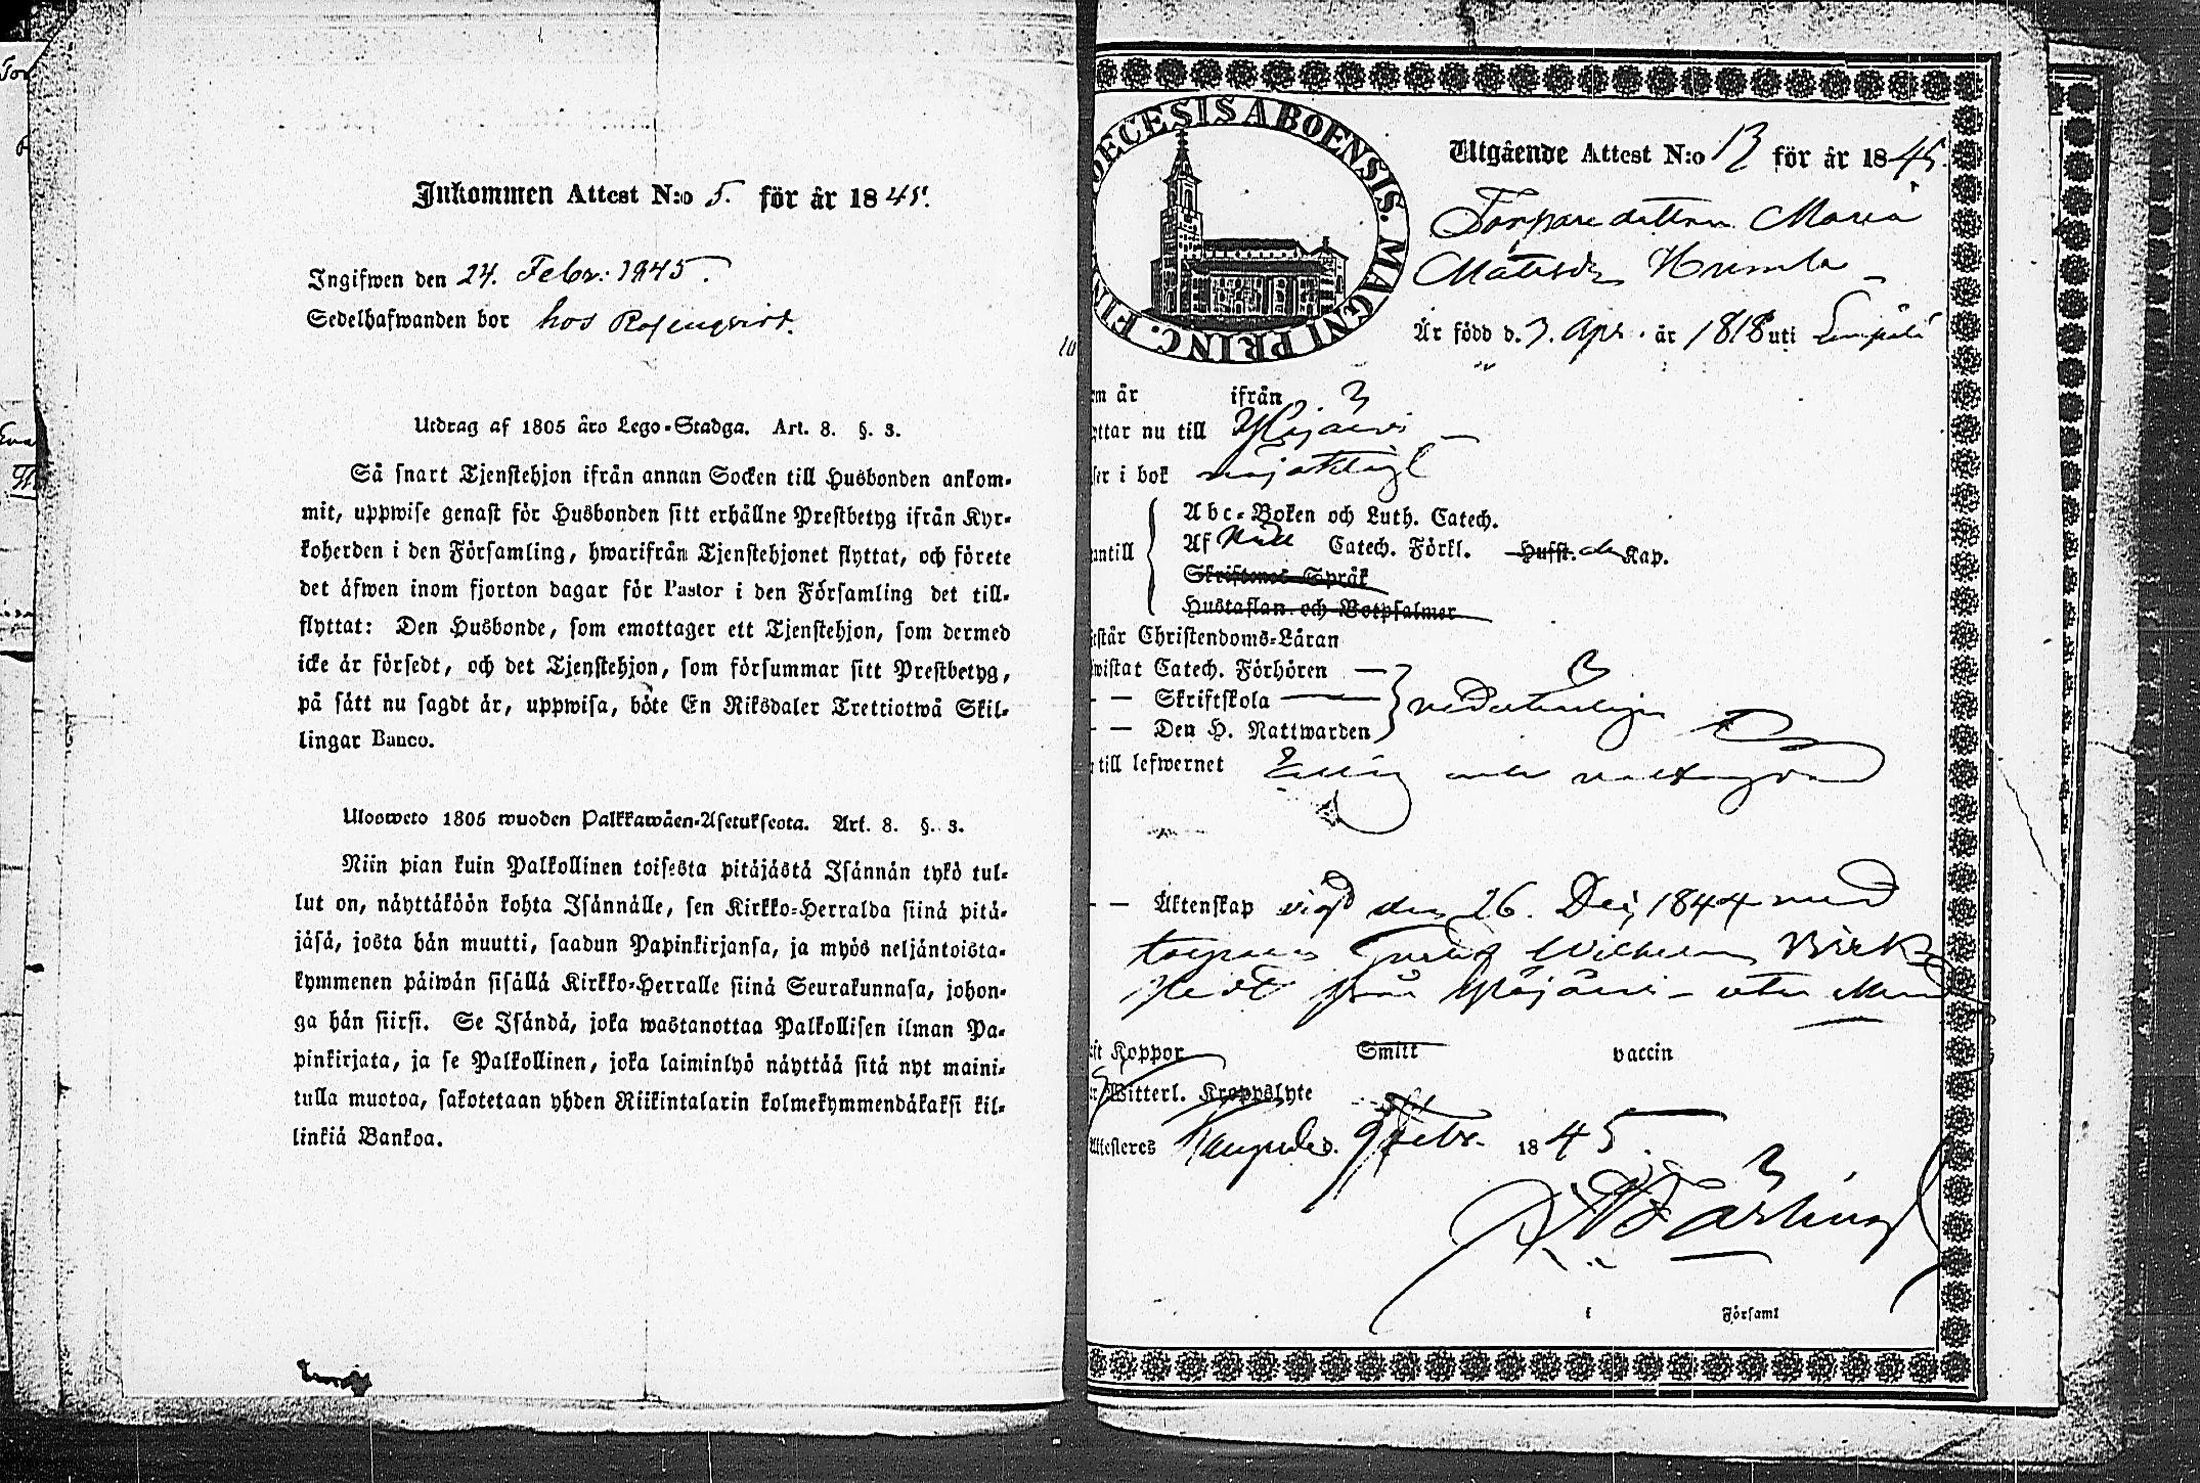 Inkommen Attest N:o 5. för år 1845.
Ingifwen den 24. Febr: 1845.
Sedelhafwanden bor hos Rosenqvist.
Utdrag af 1805 års Lego-Stadga. Art. 8. §. 3.
Så snart Tjenstehjon ifrån annan Socken till Husbonden ankom-
mit, uppwise genast för Husbonden sitt erhållne Prestbetyg ifrån Kyr-
koherden i den Församling, hwarifrån Tjenstehjonet flyttat, och förete
det äfwen inom fjorton dagar för Pastor i den Församling det till-
flyttat: Den Husbonde, som emottager ett Tjenstehjon, som dermed
icke är försedt, och det Tjenstehjon, som försummar sitt Prestbetyg,
på sätt nu sagdt är, uppwisa, böte En Riksdaler Trettiotwå Skil-
lingar Banco.
Ulosweto 1805 wuoden Palkkawäen-Asetuksesta. Art. 8. §. 3.
Niin pian kuin Palkollinen toisesta pitäjästä Isännän tykö tul-
lut on, näyttäköön kohta Isännälle, sen Kirkko-Herralda siinä pitä-
jäsä, josta hän muutti, saadun Papinkirjansa, ja myös neljäntoista-
kymmenen päiwän sisällä Kirkko-Herralle siinä Seurakunnasa, johon-
ga hän siirsi. Se Isändä, joka wastanottaa Palkollisen ilman Pa-
pinkirjata, ja se Palkollinen, joka laiminlyö näyttää sitä nyt maini-
tulla muotoa, sakotetaan yhden Riikintalarin kolmekymmendäkaksi kil-
linkiä Bankoa.
DECESIS ABOENSIS. MAGNI PRINC. FIN
Utgående Attest N:o 13 för år 1845.
Torpare dottren Maria
Matsdr Humla
Är född d. 7. Apr. år 1818 uti Lempälä
em är ifrån
yttar nu till Ylöjärvi
ser i bok nöjaktigt
antill
Abc-Boken och Luth. Catech.
Af Catech. Förkl. Hufst. Kap.
Skriftenes Språk
Hustaflan och Botpsalmer
rstår Christendoms-Läran
wistat Catech. Förhören —
— — Skriftskola —
— — Den H. Nattwarden
vederbörligen
till lefwernet
— — Äktenskap vigd den 26. Dec. 1844 med
torparen Gustaf Wilhelm Birk-
stedt från Ylöjärvi
it Koppor Smitt vaccin
r Witterl. Kroppslyte
Attesteres Kangasala. 9 Febr. 1845.
i Församl